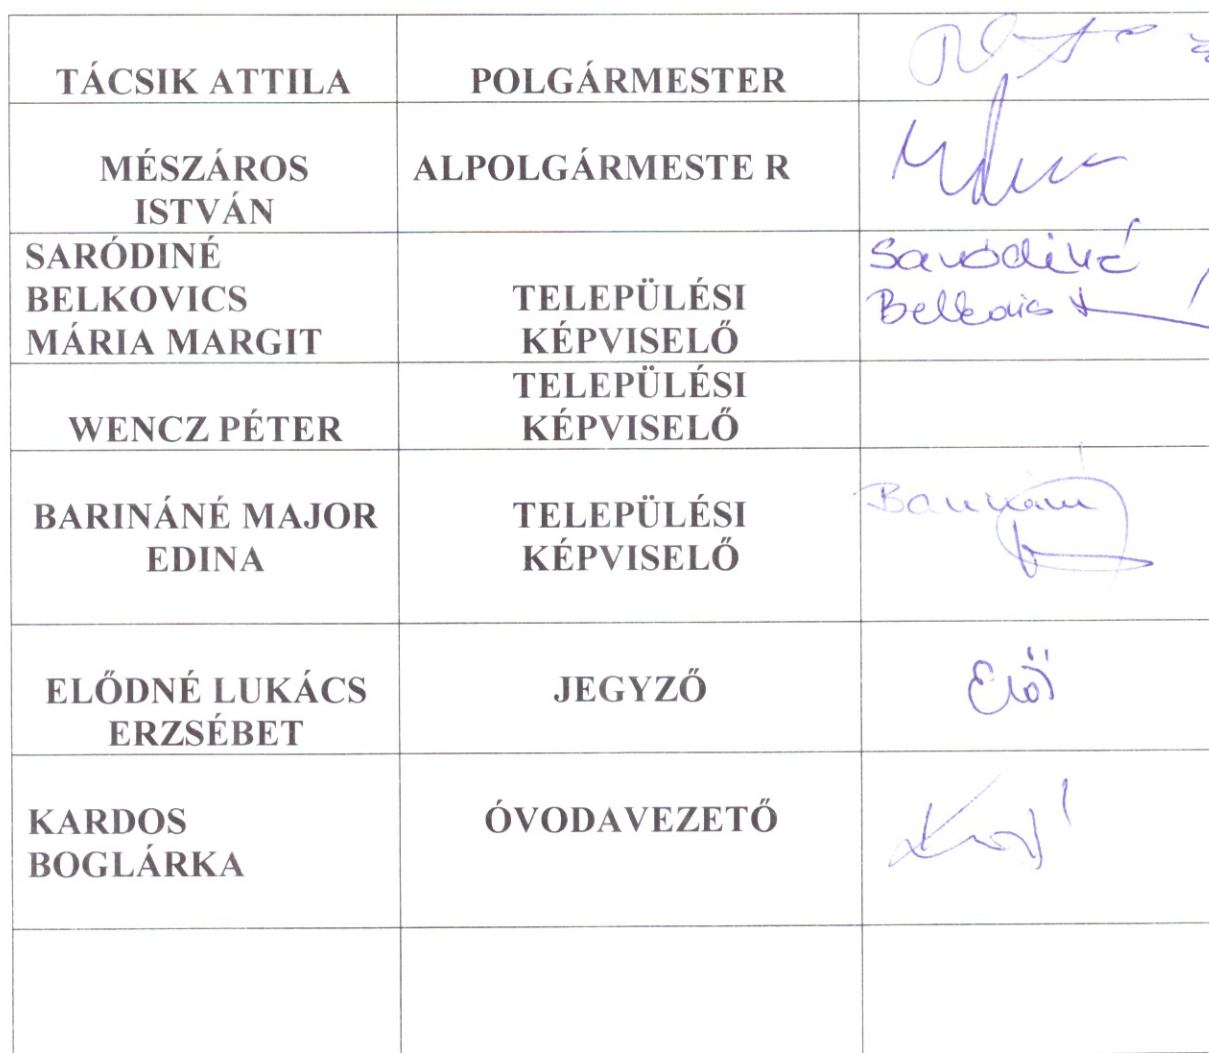 TÁCSIK ATTILA POLGÁRMESTER
MÉSZÁROS
ISTVÁN
ALPOLGÁRMESTE R
SARÓDINÉ
BELKOVICS
MÁRIA MARGIT
TELEPÜLÉSI
KÉPVISELŐ
Saródiné
Belkovics
WENCZ PÉTER
TELEPÜLÉSI
KÉPVISELŐ
BARINÁNÉ MAJOR
EDINA
TELEPÜLÉSI
KÉPVISELŐ
ELŐDNÉ LUKÁCS
ERZSÉBET
JEGYZŐ
KARDOS
BOGLÁRKA
ÓVODAVEZETŐ